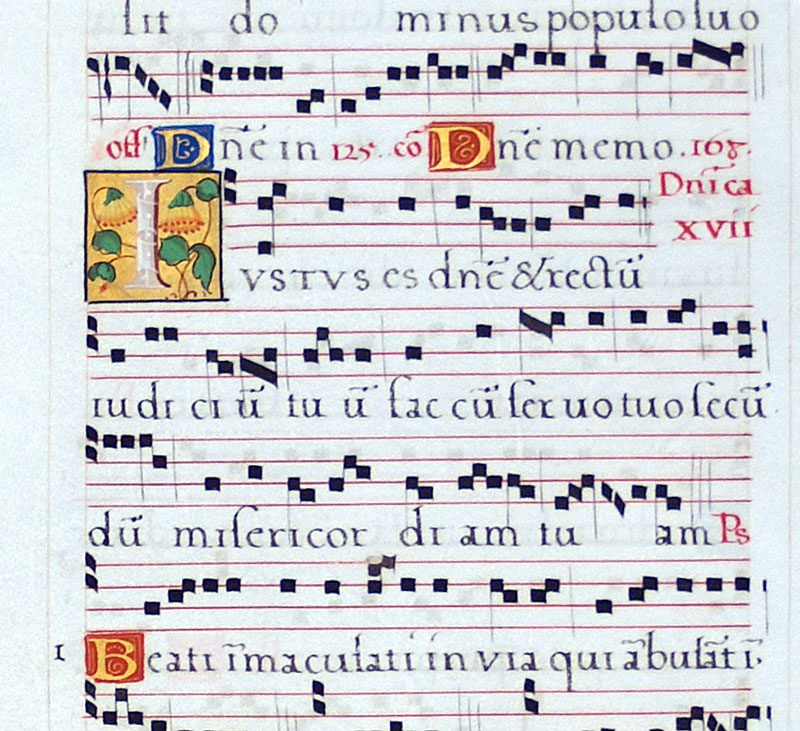 ſit do minus populo ſuo
off Dn̄e in 125. cō Dn̄e memo. 168.
Dnīca
XVII
IVSTVS es dn̄e & rectū
iudi ci ū tu ū fac cū ſer uo tuo ſecū
dū miſericor di am tu am Ps
1 Beati īmaculati in via qui ābulāt ī